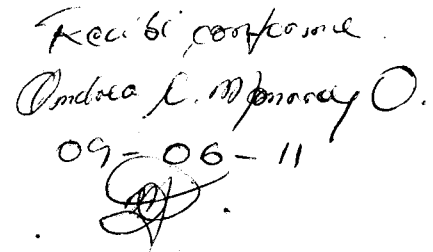 Recibi conforme.
Andrea C. O.
09-06-11